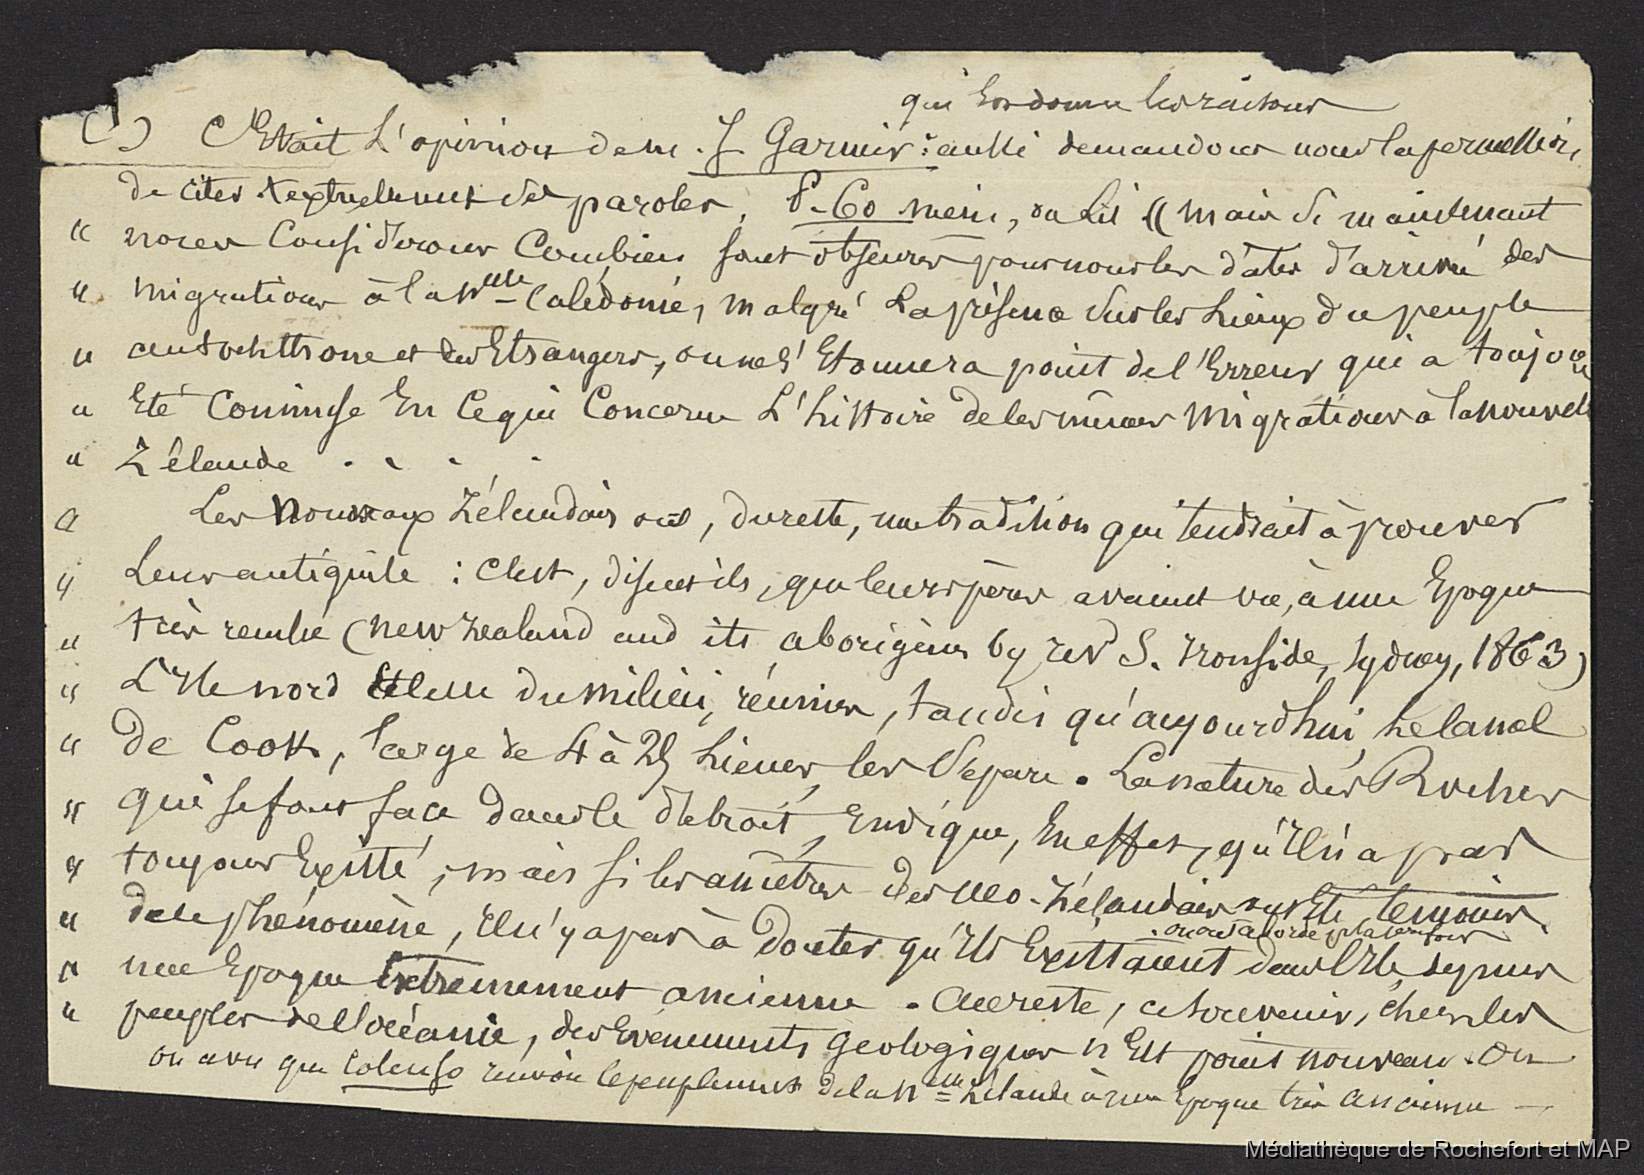 qui en donne les raisons
( ) C'était L'opinion de m. J Garnier : aussi demandons nous la permission,
de citer textuellement ses paroles. P. 60 mém, on lit (( mais si maintenant
" nous Considérons Combien sont obscures pour nous les dates d'arrivée des
" migrations à la Nlle Calédonie, malgré La présence sur les Lieux du peuple
" autochthone et des Etrangers, on ne s'Etonnera point de l'Erreur qui a toujou
" Eté Commise En Ce qui Concerne L'histoire de les mêmes Migrations à la nouvell
" Zélande . . . .
" Les Nouveaux Zélandais ont, du reste, une tradition qui tendrait à prouver
" Leur antiquité : C'est, disent-ils, que leurs pères avaient vu, à une Epoque
" très reculée (New Zealand and its aborigines by rev S. Ironside, Sydney, 1863)
" L'Ile nord et celle du milieu, réunies, tandis qu'aujourd'hui le canal
" de Cook, large de 4 à 25 Lieues, les Sépare. La nature des Rochers
" qui se font face dans le détroit, Indique, En effet, qu'Il n'a pas
" toujours Existé ; mais si les ancêtres des neo-Zélandais ont Eté témoins
" de ce phénomène, Il n'y a pas à douter qu'Ils Existaient dans l'Ile depuis
" une Epoque Extremement ancienne. Au reste, ce souvenir, chez les
" peuples de l'océanie, des Evénements géologiques n'Est point nouveau. On
on a vu que Colenso renvoie le peuplement de la Nlle Zélande à une Epoque très ancienne —
Médiathèque de Rochefort et MAP